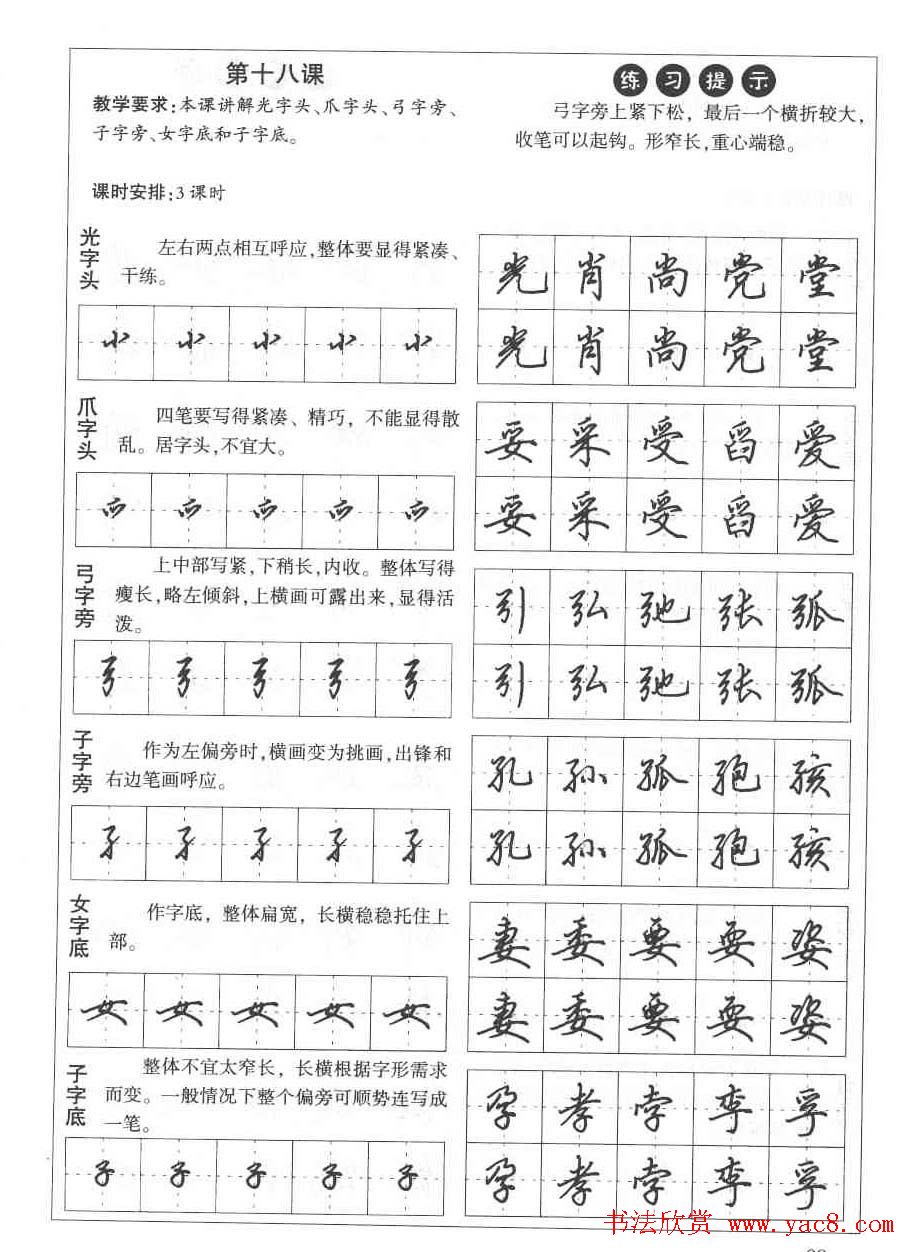 第十八课
教学要求:本课讲解光字头、爪字头、弓字旁、
子字旁、女字底和子字底。
课时安排:3课时
练习提示
弓字旁上紧下松，最后一个横折较大，
收笔可以起钩。形窄长,重心端稳。
光字头
左右两点相互呼应,整体要显得紧凑、
干练。
光肖尚党堂
光肖尚党堂
爪字头
四笔要写得紧凑、精巧，不能显得散
乱。居字头,不宜大。
妥采受舀爱
妥采受舀爱
弓字旁
上中部写紧,下稍长,内收。整体写得
瘦长,略左倾斜,上横画可露出来,显得活
泼。
弓弓弓弓弓
引弘弛张弧
引弘弛张弧
子字旁
作为左偏旁时,横画变为挑画,出锋和
右边笔画呼应。
子子子子子
孔孙孤孢孩
孔孙孤孢孩
女字底
作字底，整体扁宽，长横稳稳托住上
部。
女女女女女
妻委要耍姿
妻委要耍姿
子字底
整体不宜太窄长，长横根据字形需求
而变。一般情况下整个偏旁可顺势连写成
一笔。
子子子子子
孕孝孛李孚
孕孝孛李孚
书法欣赏 www.yac8.com